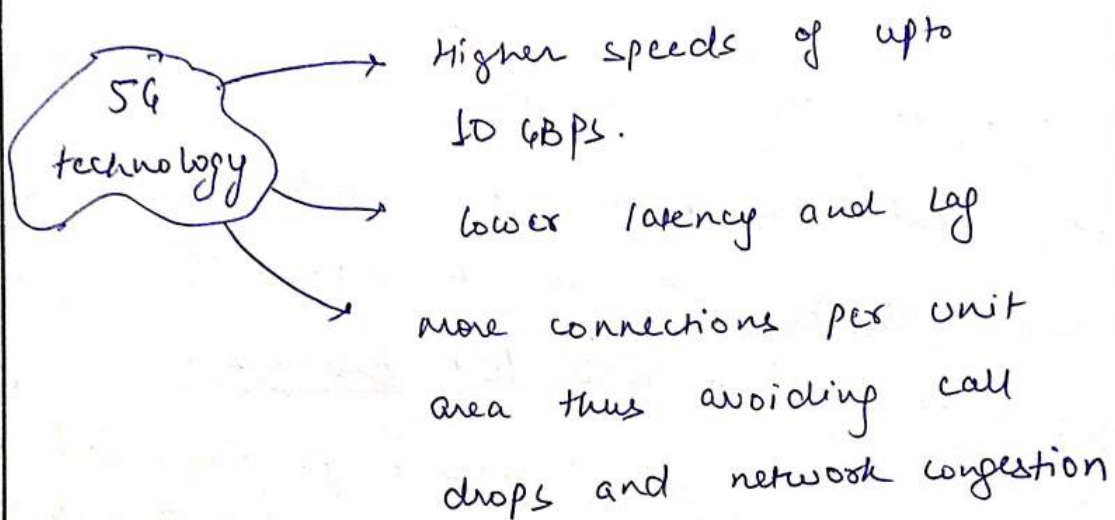 5G
technology
Higher speeds of upto
10 GBPS.
lower latency and lag
more connections per unit
area thus avoiding call
drops and network congestion